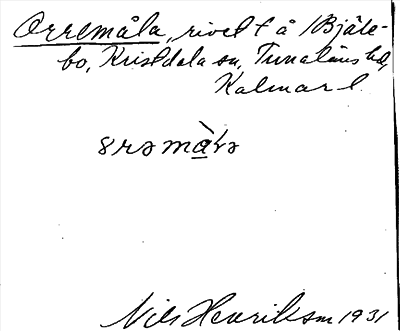 Orremåla, rivet t å /Bjäle-
bo, Kristdala sn, Tunaläns hd,
Kalmar l.
8rəmàlə
Nils Henrikson 1931